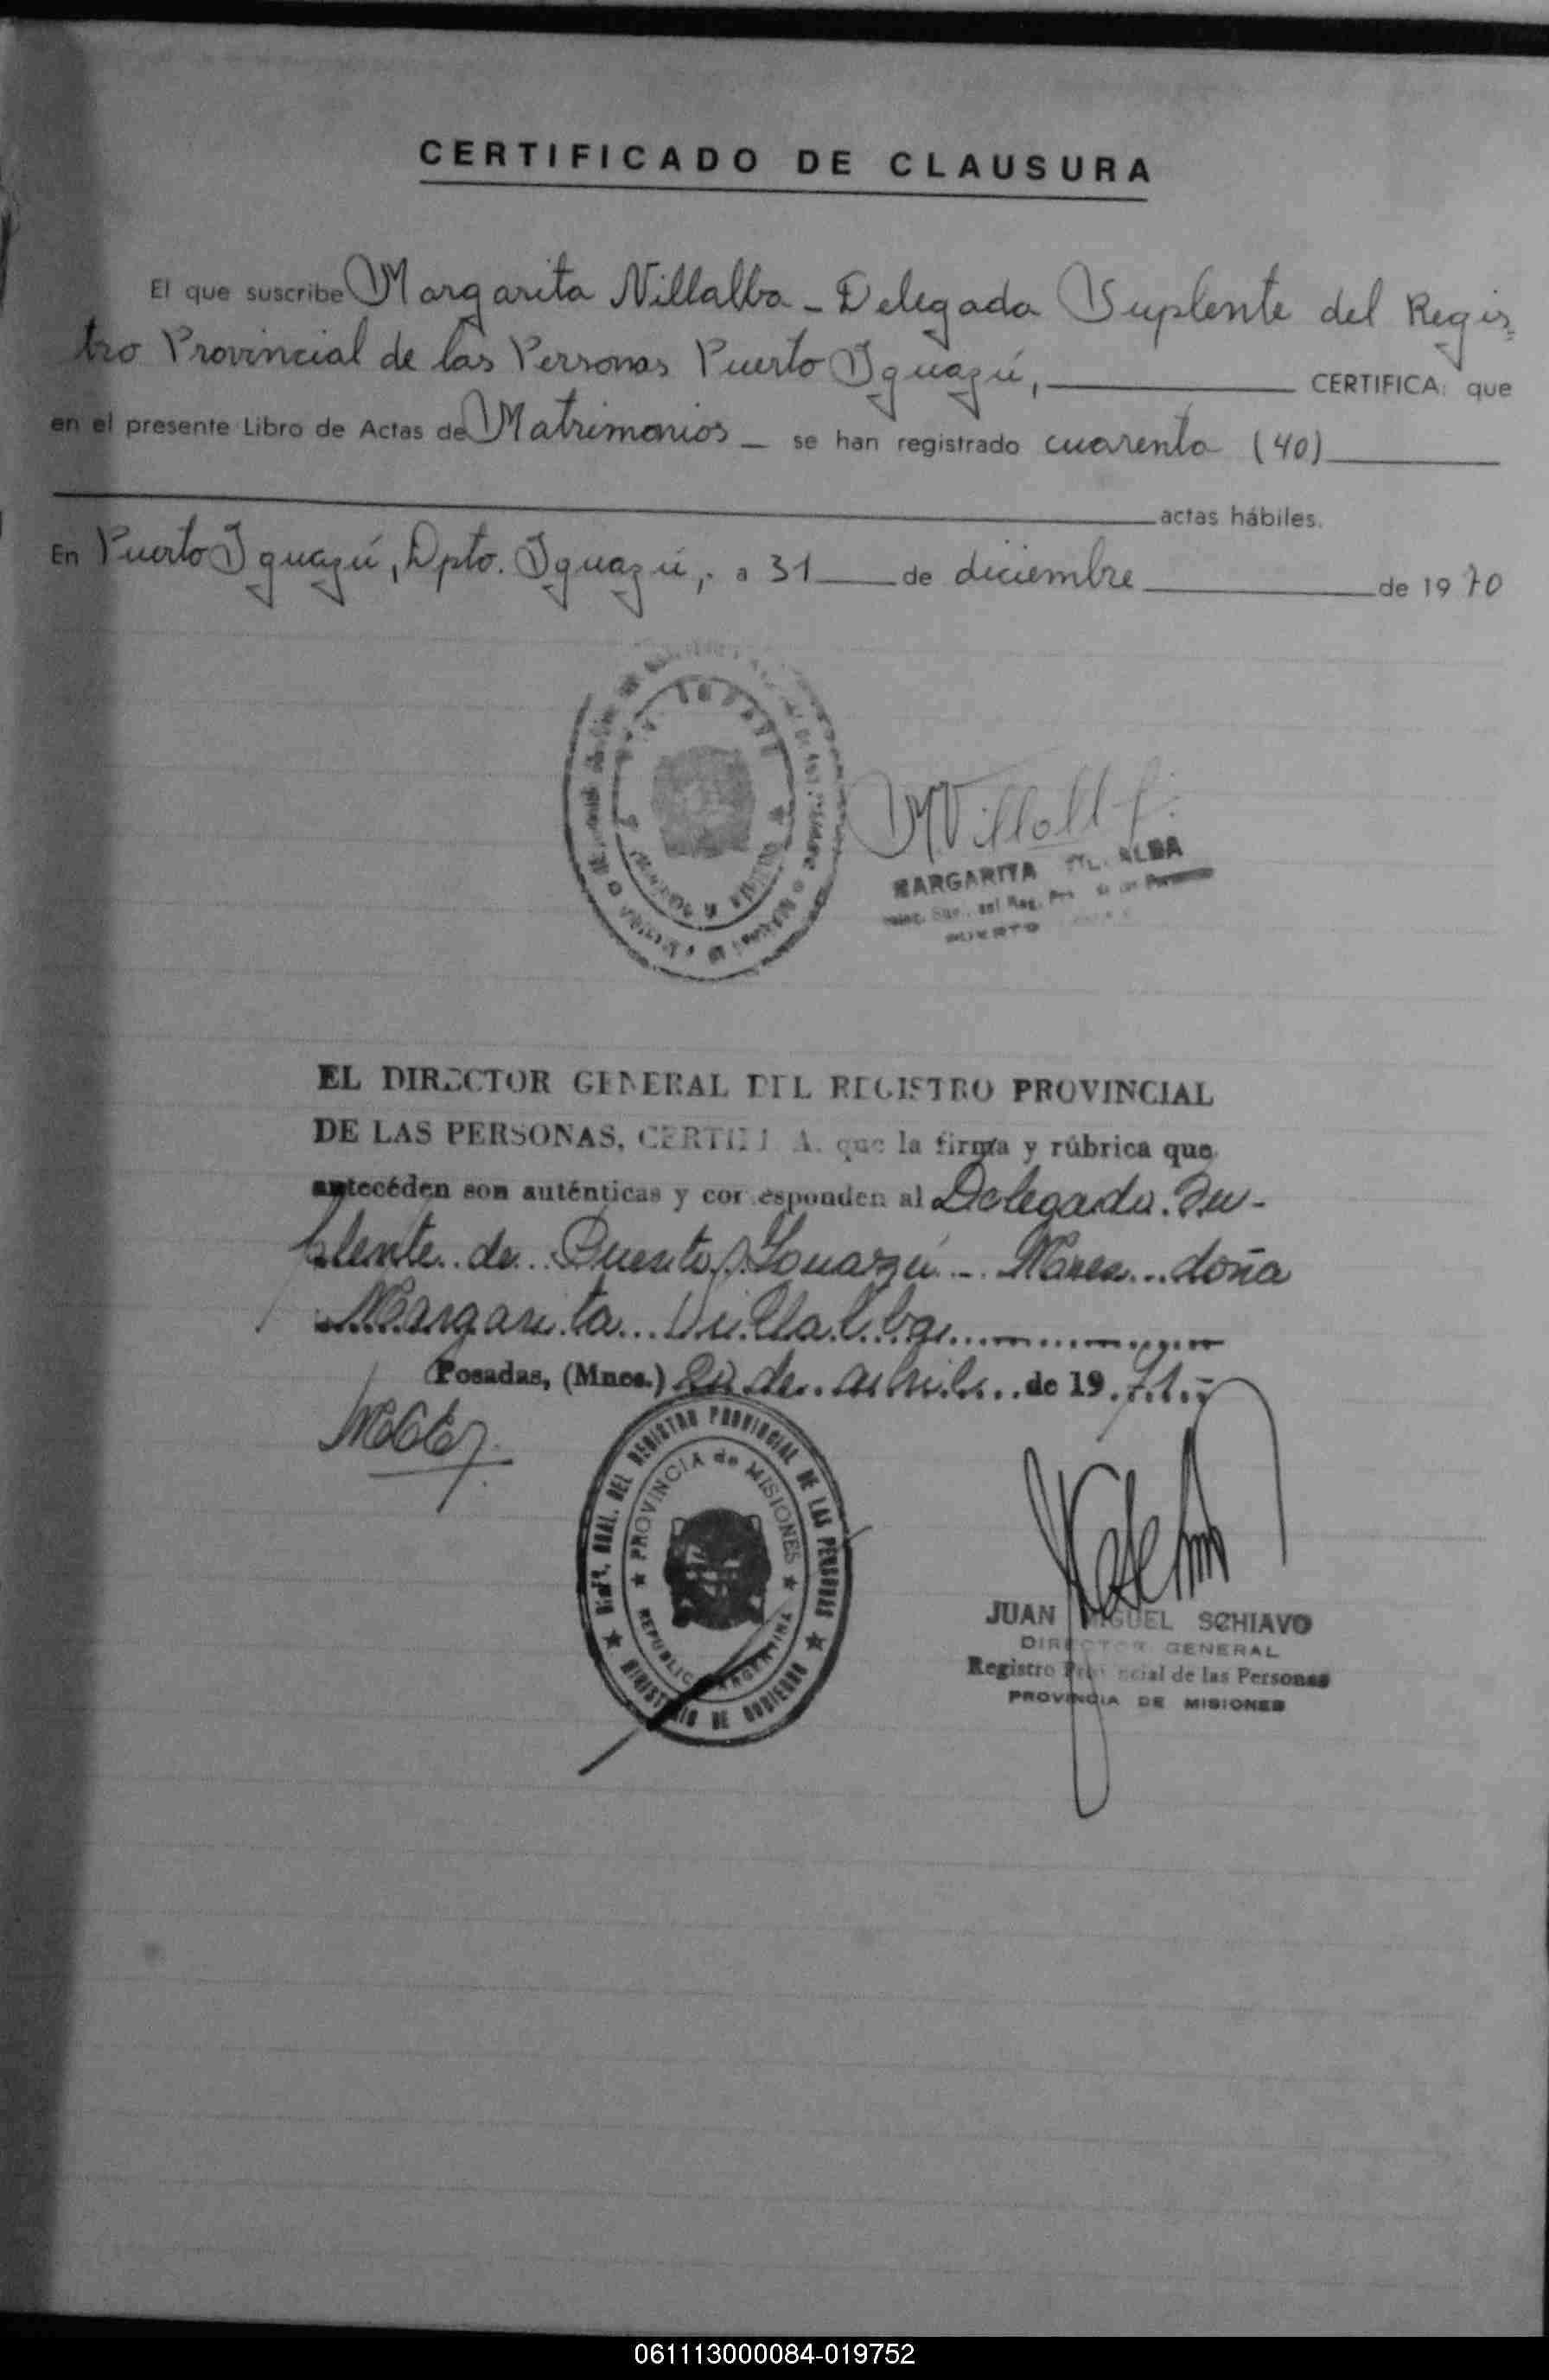 CERTIFICADO DE CLAUSURA
El que suscribe Margarita Villalba - Delegada Suplente del Regis=
tro Provincial de las Personas Puerto Iguazú, CERTIFICA: que
en el presente Libro de Actas de Matrimonios - se han registrado cuarenta (40)
actas hábiles.
En Puerto Iguazú, Dpto. Iguazú, a 31 de diciembre de 1970
MVillalba
MARGARITA VILLALBA
PUERTO
EL DIRECTOR GENERAL DEL REGISTRO PROVINCIAL
DE LAS PERSONAS, CERTIFICA: que la firma y rúbrica que
anteceden son auténticas y corresponden al Delegada Su-
plente de Puerto Iguazú - doña
Margarita Villalba
Posadas, (Mnes.) de abril de 1971
DIR. GRAL. DEL REGISTRO PROVINCIAL DE LAS PERSONAS
PROVINCIA de MISIONES
REPUBLICA ARGENTINA
MINISTERIO DE GOBIERNO
JUAN MIGUEL SCHIAVO
DIRECTOR GENERAL
Registro Provincial de las Personas
PROVINCIA DE MISIONES
061113000084-019752